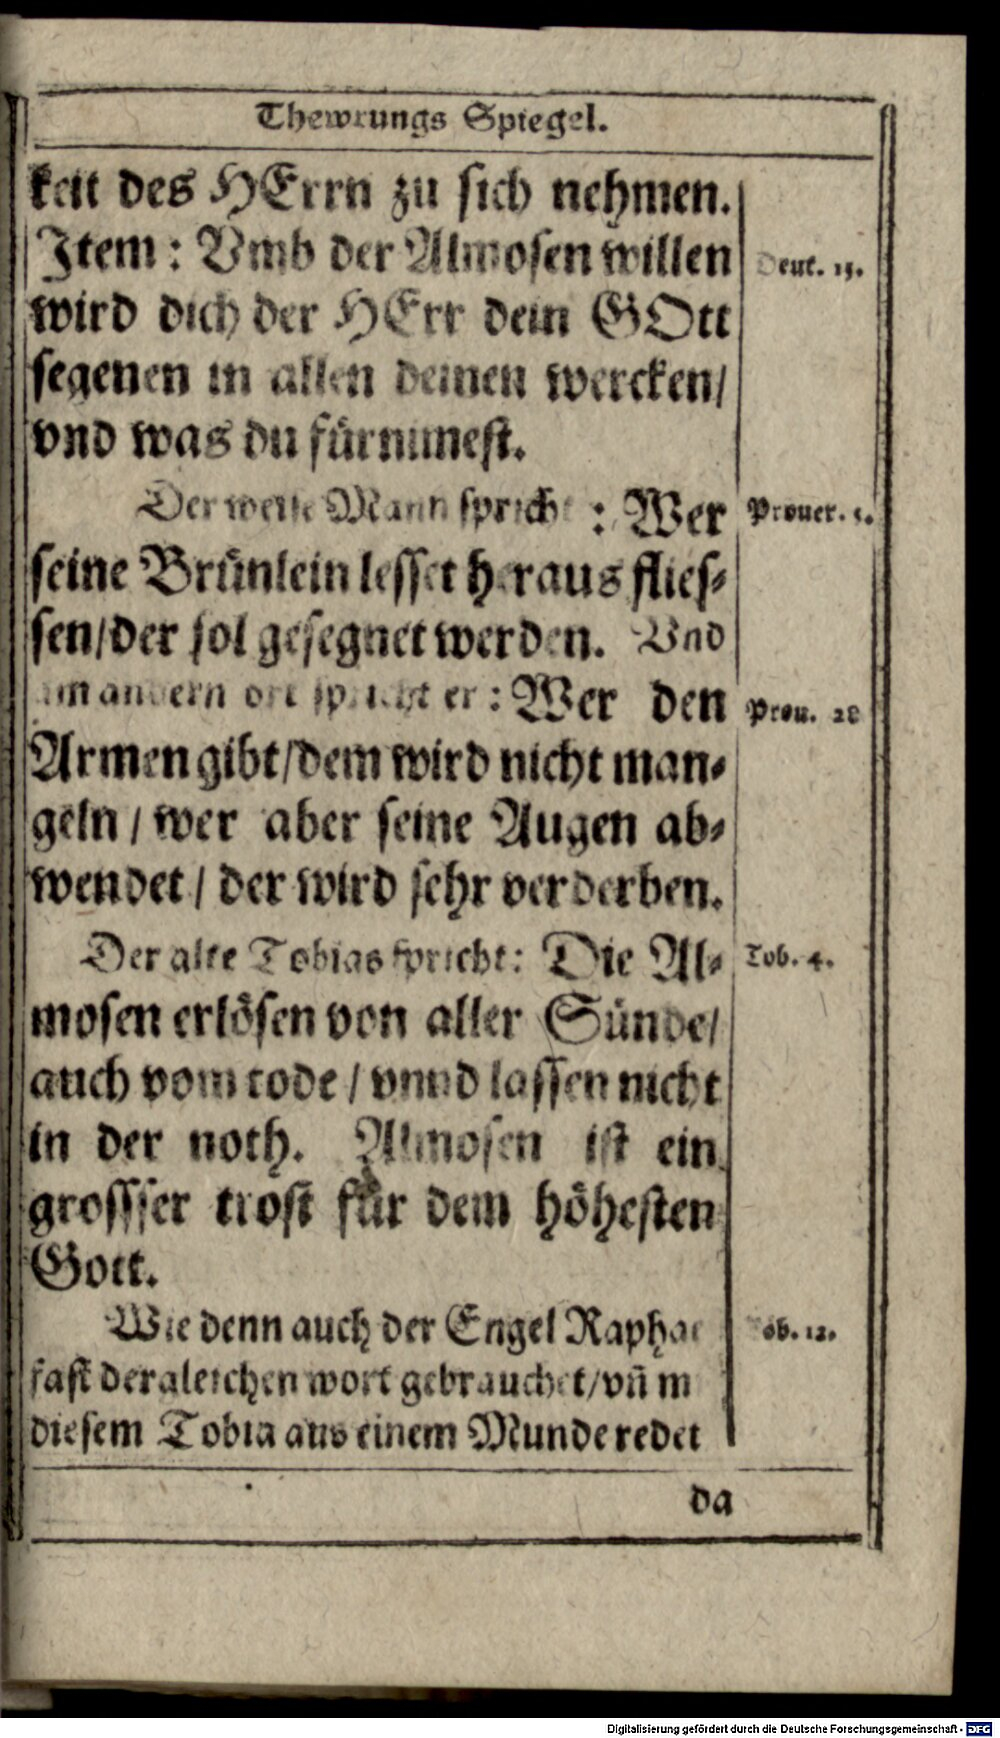 Thewrungs Spiegel.
keit des HErrn zu sich nehmen.
Item: Vmb der Almosen willen
Deut. 15.
wird dich der HErr dein GOtt
segenen in allen deinen wercken/
vnd was du fürnimest.
Der weise Mann spricht: Wer
Prouer. 5.
seine Brünlein lesset heraus flies-
sen/der sol gesegnet werden. Vnd
im andern ort spricht er: Wer den
Prou. 28
Armen gibt/dem wird nicht man-
geln/wer aber seine Augen ab-
wendet/der wird sehr verderben.
Der alte Tobias spricht: Die Al-
Tob. 4.
mosen erlösen von aller Sünde/
auch vom tode/vnnd lassen nicht
in der noth. Almosen ist ein
grossser trost für dem höhesten
Gott.
Wie denn auch der Engel Raphae
Tob. 12.
fast dergleichen wort gebrauchet/vn̄ in
diesem Tobia aus einem Munde redet
da
Digitalisierung gefördert durch die Deutsche Forschungsgemeinschaft - DFG